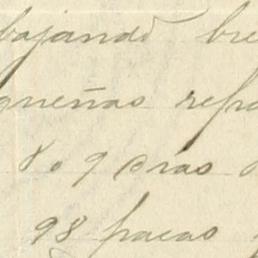 bajando bre
queñas refra
8 o 9 dias
98 pacas